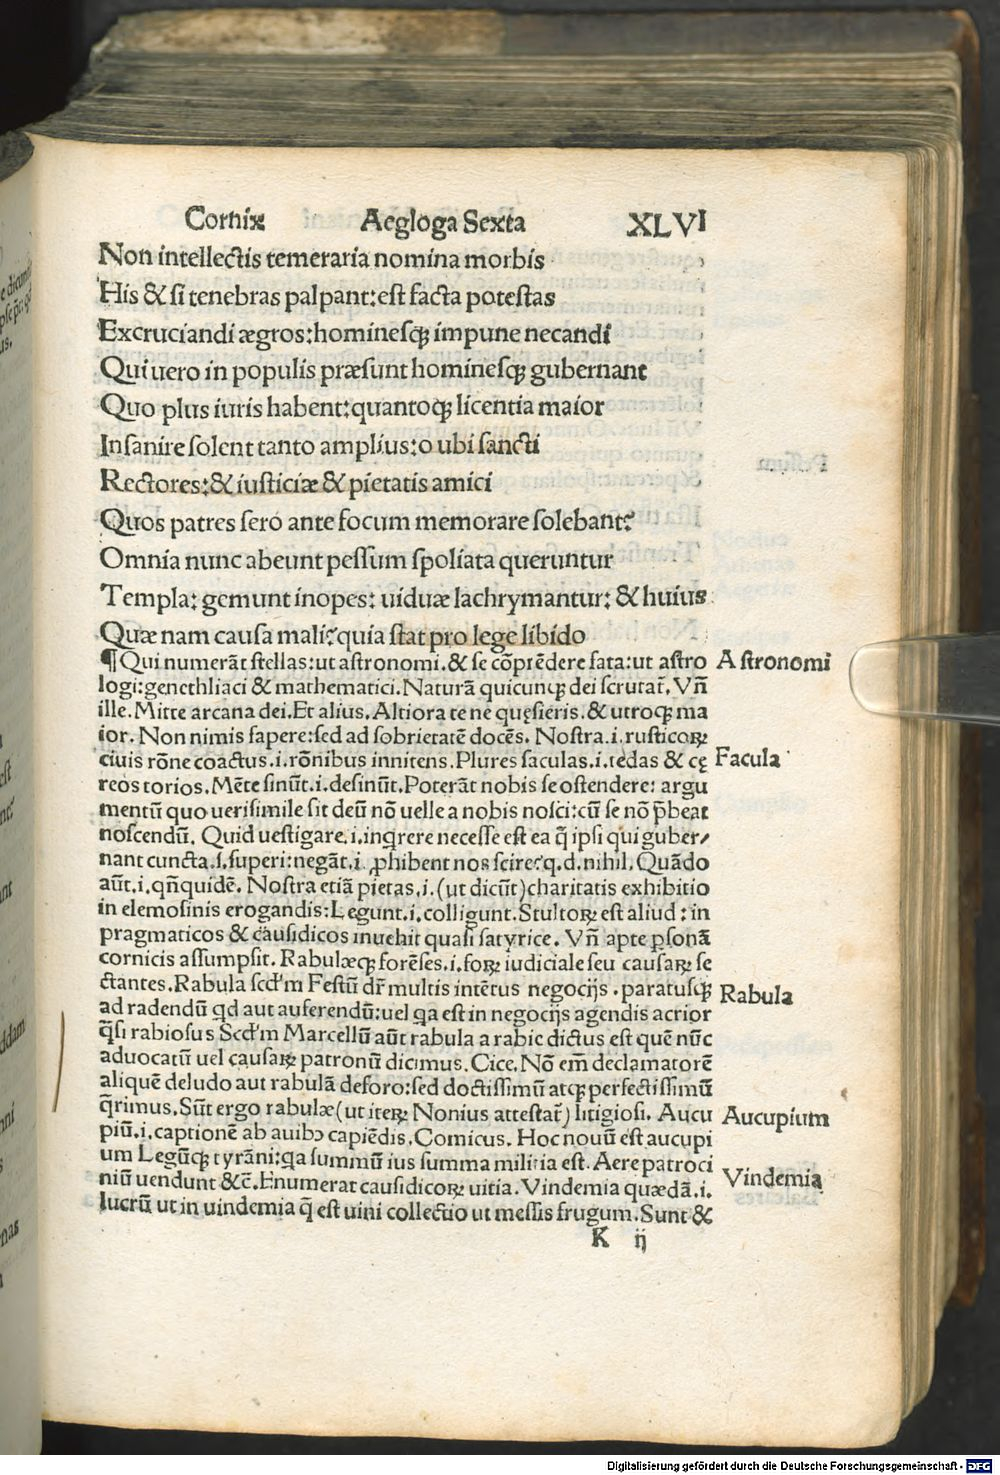 Cornix Aegloga Sexta XLVI
Non intellectis temeraria nomina morbis
His & si tenebras palpant: est facta potestas
Excruciandi ægros: hominesqꝫ impune necandi
Qui uero in populis præsunt hominesqꝫ gubernant
Quo plus iuris habent: quantoqꝫ licentia maior
Insanire solent tanto amplius: o ubi sancti
Rectores: & iusticiæ & pietatis amici
Quos patres sero ante focum memorare solebant?
Omnia nunc abeunt pessum spoliata queruntur
Templa: gemunt inopes: uiduæ lachrymantur: & huius
Quæ nam causa mali? quia stat pro lege libido
¶ Qui numerāt stellas: ut astronomi. & se cōprēdere fata: ut astro
logi: genethliaci & mathematici. Naturā quicunqꝫ dei scrutat᷑. Vñ
ille. Mitte arcana dei. Et alius. Altiora te ne quęsieris. & utroqꝫ ma
ior. Non nimis sapere: sed ad sobrietatē docēs. Nostra .i. rusticoꝝ
ciuis rōne coactus .i. rōnibus innitens. Plures faculas .i. tędas & cę
reos torios. Mēte sinūt .i. desinūt. Poterāt nobis se ostendere: argu
mentū quo uerisimile sit deū nō uelle a nobis nosci: cū se nō p̄beat
noscendū. Quid uestigare .i. inqrere necesse est ea q̄ ipsi qui guber/
nant cuncta .s. superi: negāt .i. ꝓhibent nos scire? q.d. nihil. Quādo
aūt .i. qñquidē. Nostra etiā pietas .i. (ut dicūt) charitatis exhibitio
in elemosinis erogandis: Legunt .i. colligunt. Stultoꝝ est aliud: in
pragmaticos & causidicos inuehit quasi satyrice. Vñ apte ꝑsonā
cornicis assumpsit. Rabulæqꝫ forēses .i. foꝝ iudiciale seu causaꝝ se
ctantes. Rabula scd'm Festū dr̄ multis intētus negocijs . paratusqꝫ
ad radendū qd aut auferendū: uel qa est in negocijs agendis acrior
q̄si rabiosus Scd'm Marcellū aūt rabula a rabie dictus est quē nūc
aduocatū uel causaꝝ patronū dicimus. Cice. Nō em̄ declamatorē
aliquē de ludo aut rabulā de foro: sed doctissimū atqꝫ perfectissimū
q̄rimus. Sūt ergo rabulæ (ut iteꝝ Nonius attestat᷑) litigiosi. Aucu
piū .i. captionē ab auibꝰ capiēdis. Comicus. Hoc nouū est aucupi
um Legūqꝫ tyrāni: qa summū ius summa militia est. Aere patroci
niū uendunt &c̄. Enumerat causidicoꝝ uitia. Vindemia quædā .i.
lucrū ut in uindemia q̄ est uini collectio ut messis frugum. Sunt &
K ij
Astronomi
Facula
Rabula
Aucupium
Vindemia
Digitalisierung gefördert durch die Deutsche Forschungsgemeinschaft - DFG